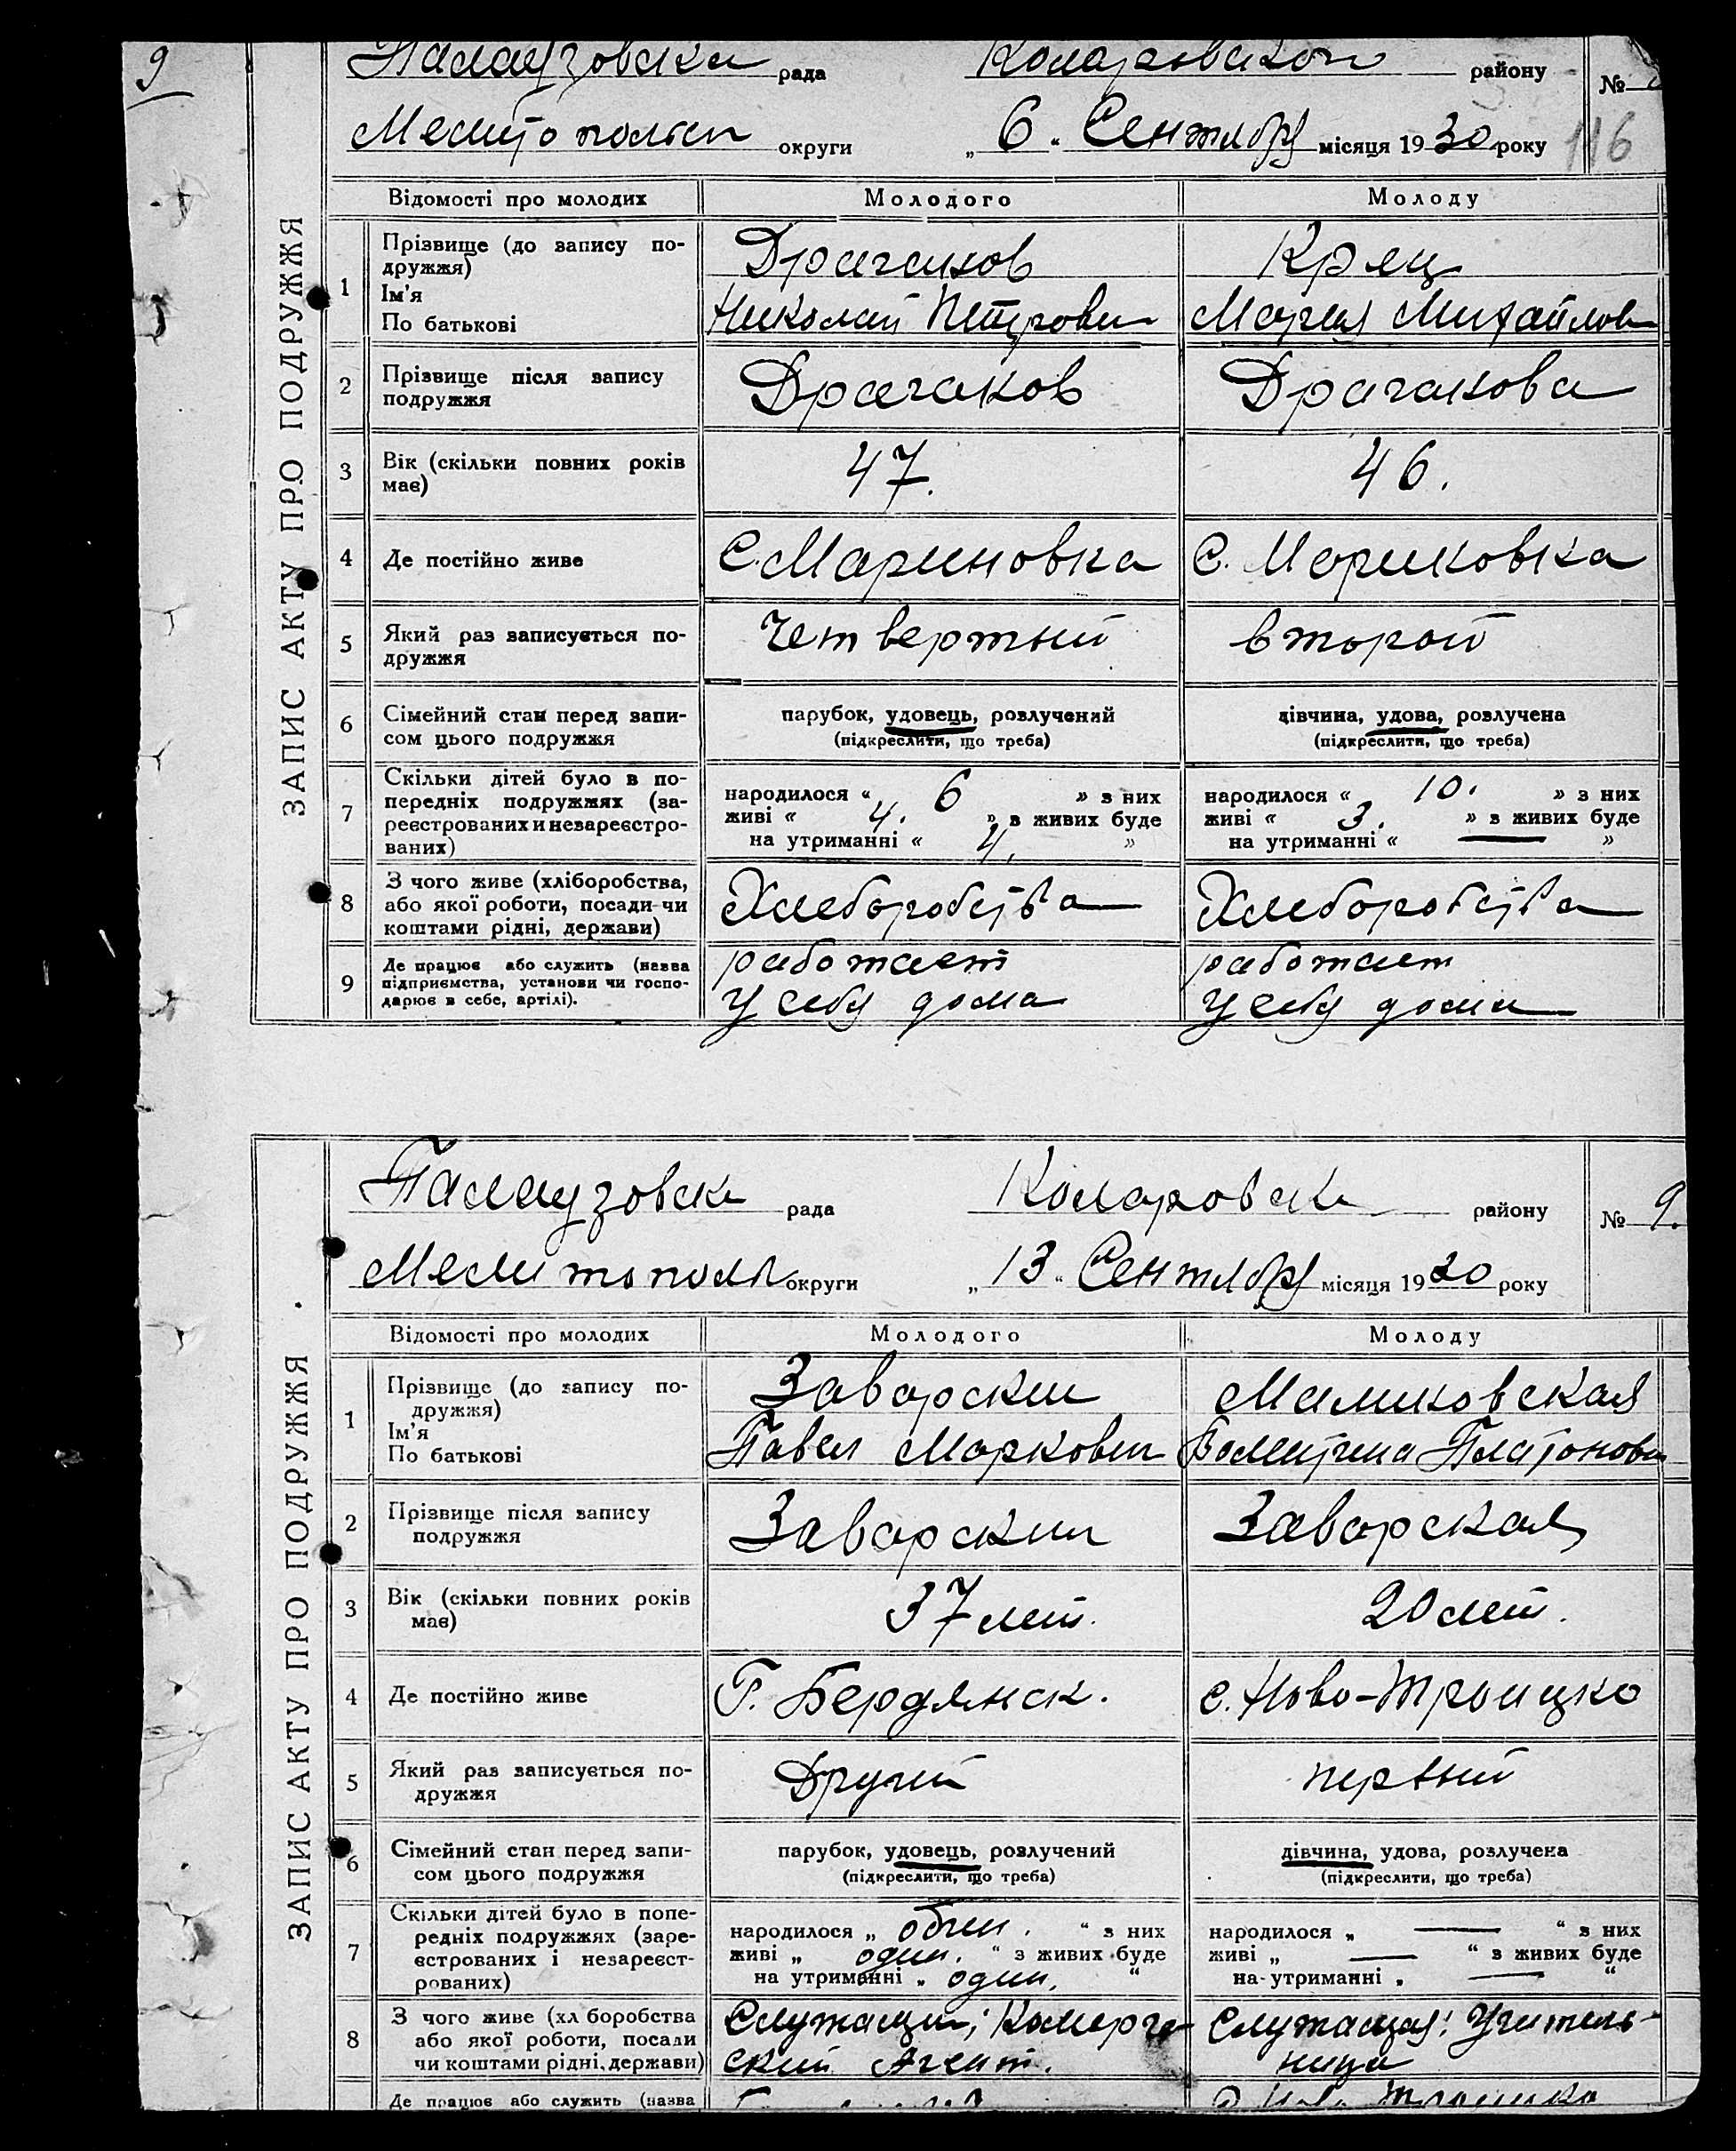 9
Палаузовска рада Коларовском району №
Мелитопольск округи „ 6 “ Сентября місяця 1930 року 116
ЗАПИС АКТУ ПРО ПОДРУЖЖЯ
Відомості про молодих Молодого Молоду
1 Прізвище (до запису по-
дружжя) Драганов Крец
Ім'я
По батькові Николай Петрович Мария Михайлов
2 Прізвище після запису
подружжя Драганов Драганова
3 Вік (скільки повних років
має) 47. 46.
4 Де постійно живе С. Мариновка С. Мариновка
5 Який раз записується по-
дружжя Четвертый второй
6 Сімейний стан перед запи-
сом цього подружжя
парубок, удовець, розлучений
(підкреслити, що треба)
дівчина, удова, розлучена
(підкреслити, що треба)
7 Скільки дітей було в по-
передніх подружжях (за-
реєстрованих и незареєстро-
ваних)
народилося “ 6 ” з них
живі “ 4. ” з живих буде
на утриманні “ 4. ”
народилося “ 10. ” з них
живі “ 3. ” з живих буде
на утриманні “ — ”
8 З чого живе (хліборобства,
або якої роботи, посади чи
коштами рідні, держави)
Хлеборобства Хлеборобства
9 Де працює або служить (назва
підприємства, установи чи госпо-
дарює в себе, артілі).
работает
у себя дома
работает
у себя дома
Палаузовск рада Коларовск району № 9.
Мелитополь округи „ 13 “ Сентября місяця 1930 року
ЗАПИС АКТУ ПРО ПОДРУЖЖЯ
Відомості про молодих Молодого Молоду
1 Прізвище (до запису по-
дружжя) Заварский Малиновская
Ім'я
По батькові Павел Маркович Валентина Платонов
2 Прізвище після запису
подружжя Заварский Заварская
3 Вік (скільки повних років
має) 37 лет. 20 лет.
4 Де постійно живе Г. Бердянск. с. Ново-Троицко
5 Який раз записується по-
дружжя Другий первый
6 Сімейний стан перед запи-
сом цього подружжя
парубок, удовець, розлучений
(підкреслити, що треба)
дівчина, удова, розлучена
(підкреслити, що треба)
7 Скільки дітей було в попе-
редніх подружжях (заре-
єстрованих і незареєст-
рованих)
народилося „ один. “ з них
живі „ один. “ з живих буде
на утриманні „ один. “
народилося „ — “ з них
живі „ — “ з живих буде
на утриманні „ — “
8 З чого живе (хл боробства
або якої роботи, посади
чи коштами рідні, держави)
Служащий; Комерче-
ский Агент.
Служащая: Учитель-
ница
Де працює або служить (назва